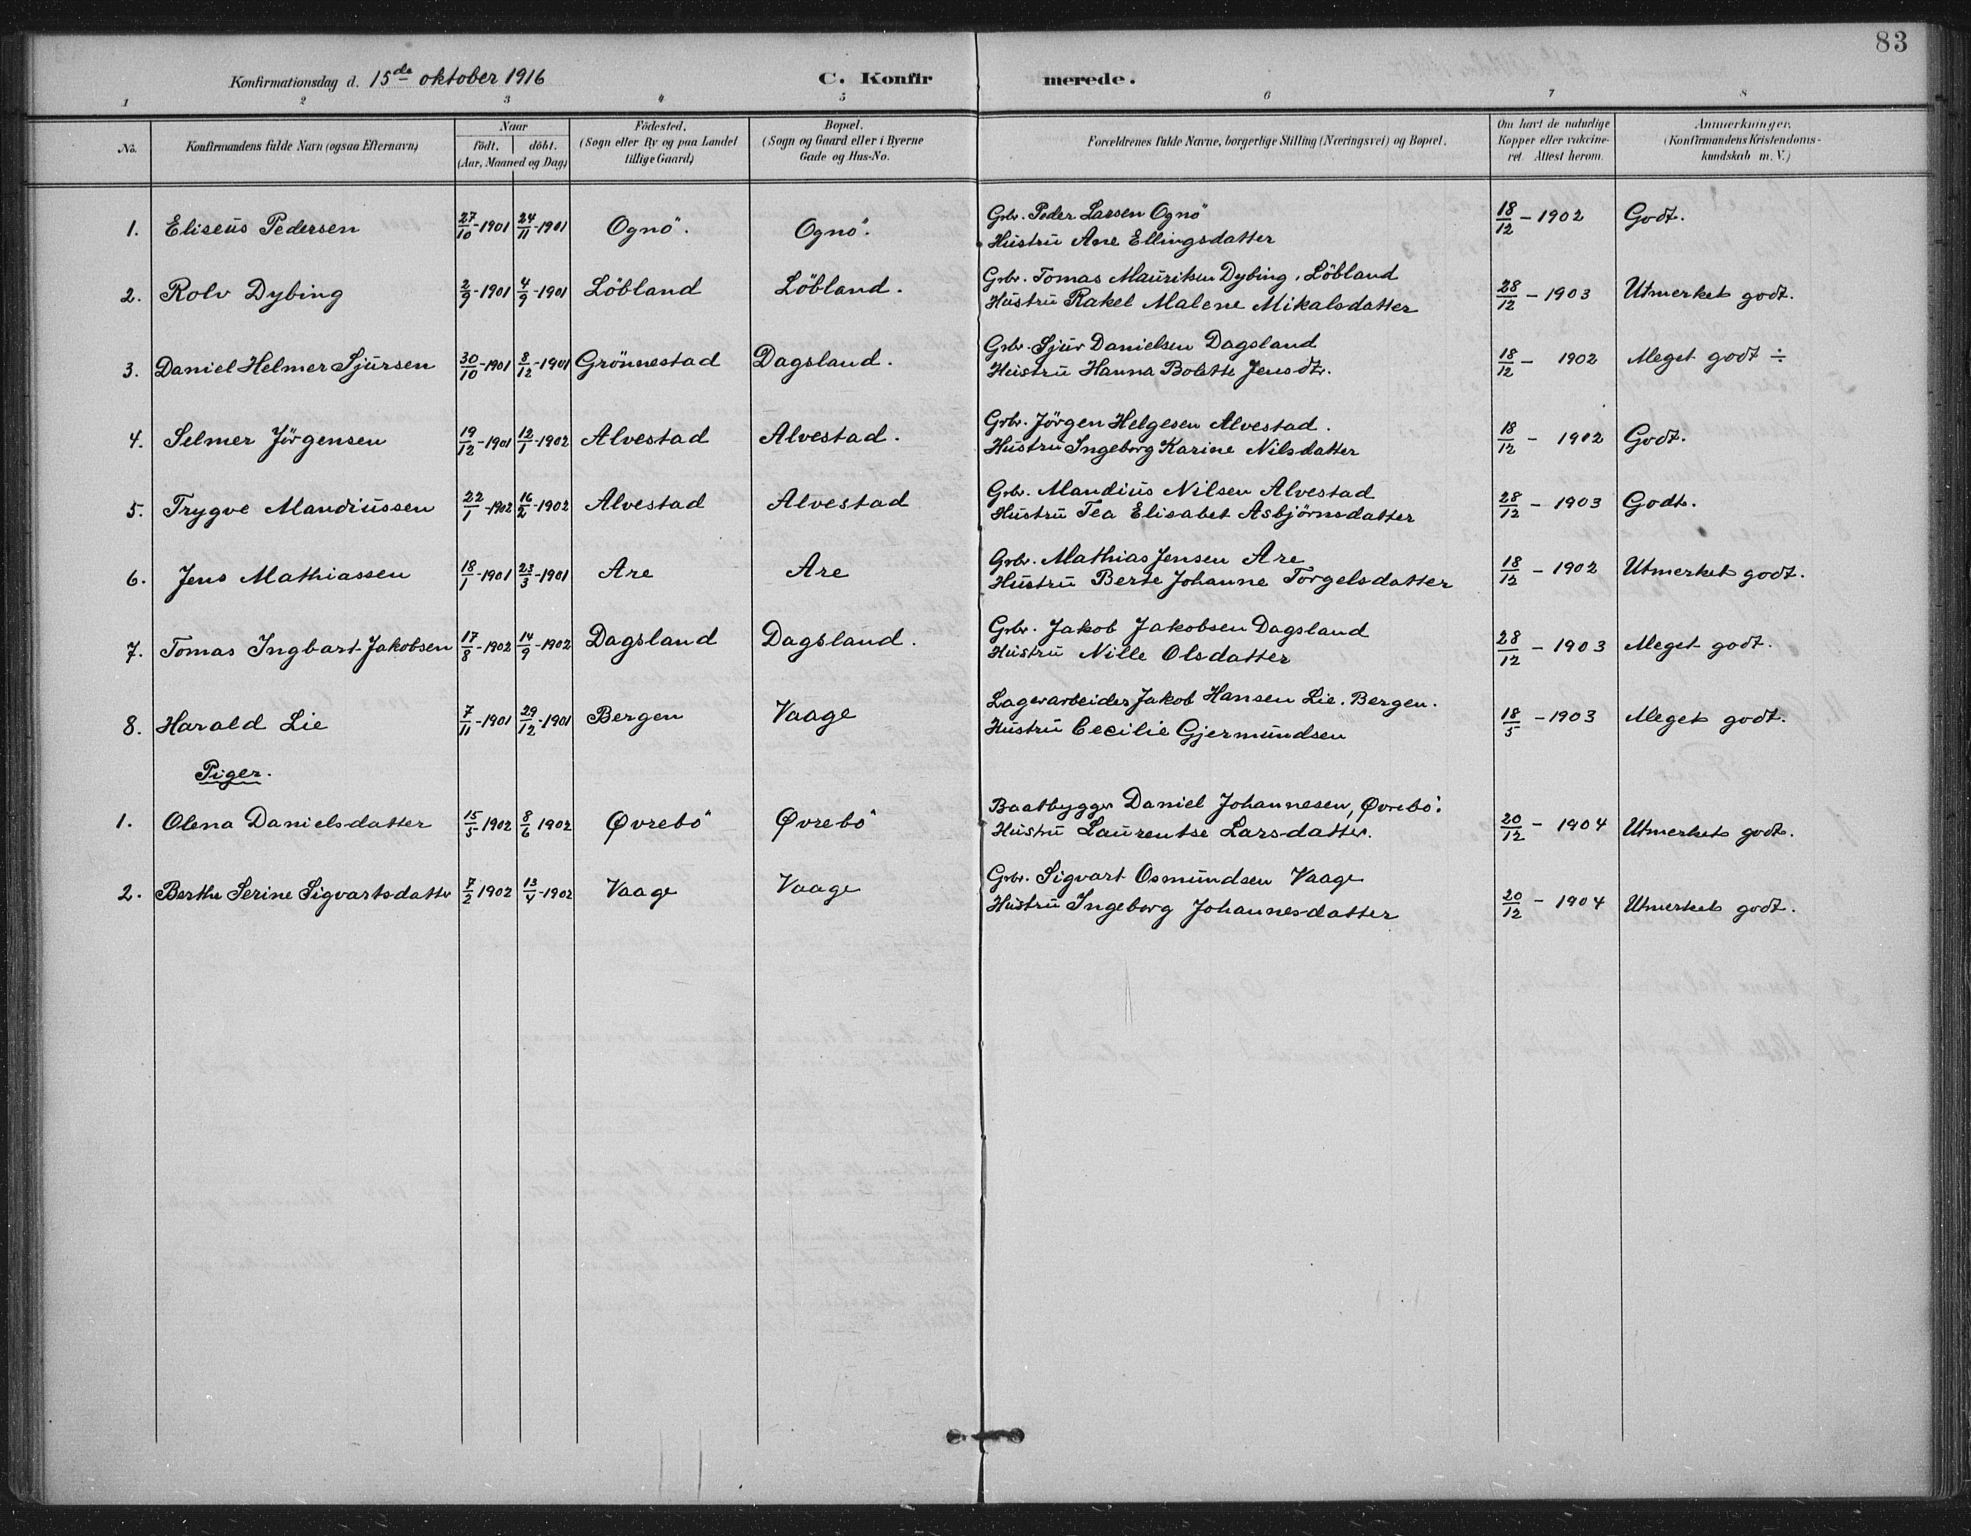 83
Konfirmationsdag d. 15de oktober 1916 C. Konfirmerede.
1 2 3 4 5 6 7 8
No. Konfirmandens fulde Navn (ogsaa Efternavn) Naar født. døbt. (Aar, Maaned og Dag) Fødested. (Sogn eller By og paa Landet tillige Gaard) Bopæl. (Sogn og Gaard eller i Byerne Gade og Hus-No. Forældrenes fulde Navne, borgerlige Stilling (Næringsvei) og Bopæl. Om havt de naturlige Kopper eller vakcineret. Attest herom. Anmærkninger. (Konfirmandens Kristendomskundskab m. V.)
1. Eliseus Pedersen 27/10-1901 24/11-1901 Ognö. Ognö. Grbr. Peder Larsen Ognö 18/12 - 1902 Godt.
Hustru Ane Ellingsdatter
2. Rolv Dybing 2/9-1901 4/9-1901 Löbland Löbland. Grbr. Tomas Mauritsen Dybing, Löbland 28/12 - 1903 Utmerket godt.
Hustru Rakel Malene Mikalsdatter
3. Daniel Helmer Sjursen 30/10-1901 8/12-1901 Grönnestad Dagsland. Grbr. Sjur Danielsen Dagsland 18/12 - 1902 Meget godt ÷
Hustru Hanna Bolette Jensdtr.
4. Selmer Jörgensen 19/12-1901 12/1-1902 Alvestad Alvestad. Grbr. Jörgen Helgesen Alvestad. 18/12 - 1902 Godt.
Hustru Ingeborg Karine Nilsdatter
5. Trygve Mandiussen 22/1-1902 16/2-1902 Alvestad Alvestad Grbr. Mandius Nilsen Alvestad 28/12 - 1903 Godt.
Hustru Tea Elisabet Asbjörnsdatter
6. Jens Mathiassen 18/1-1901 23/3-1901 Are Are Grbr. Mathias Jensen Are 18/12 - 1902 Utmerket godt.
Hustru Berte Johanne Torgelsdatter
7. Tomas Ingbart Jakobsen 17/8-1902 14/9-1902 Dagsland Dagsland. Grbr. Jakob Jakobsen Dagsland 28/12 - 1903 Meget godt.
Hustru Nille Olsdatter
8. Harald Lie 7/11-1901 29/12-1901 Bergen Vaage Lagerarbeider Jakob Hansen Lie. Bergen. 18/5 - 1903 Meget godt.
Hustru Cecilie Gjermundsen
Piger.
1. Olena Danielsdatter 15/5 1902 8/6 1902 Øvrebö Øvrebö Baatbygger Daniel Johannesen, Øvrebö. 20/12 - 1904 Utmerket godt.
Hustru Laurentse Larsdatter.
2. Berthe Serine Sigvartsdatter 7/2 1902 13/4-1902 Vaage Vaage Grbr. Sigvart Osmundsen Vaage 20/12 - 1904 Utmerket godt.
Hustru Ingeborg Johannesdatter